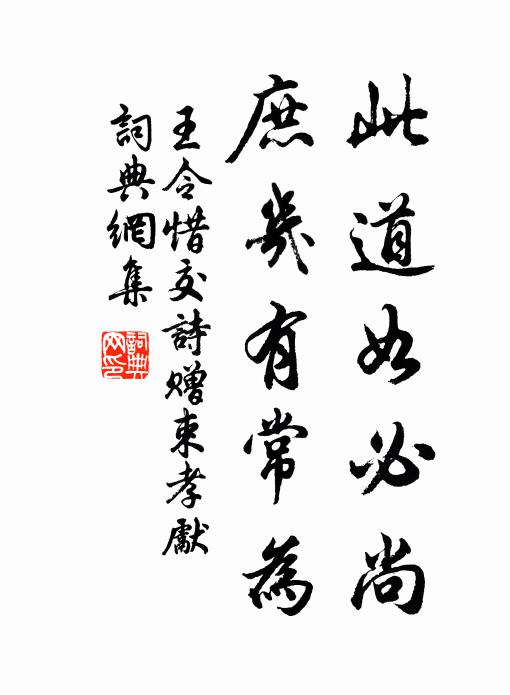 此道如必尚
庶幾有常為
王令惜交詩贈束孝獻
詞典網集
詞典網印